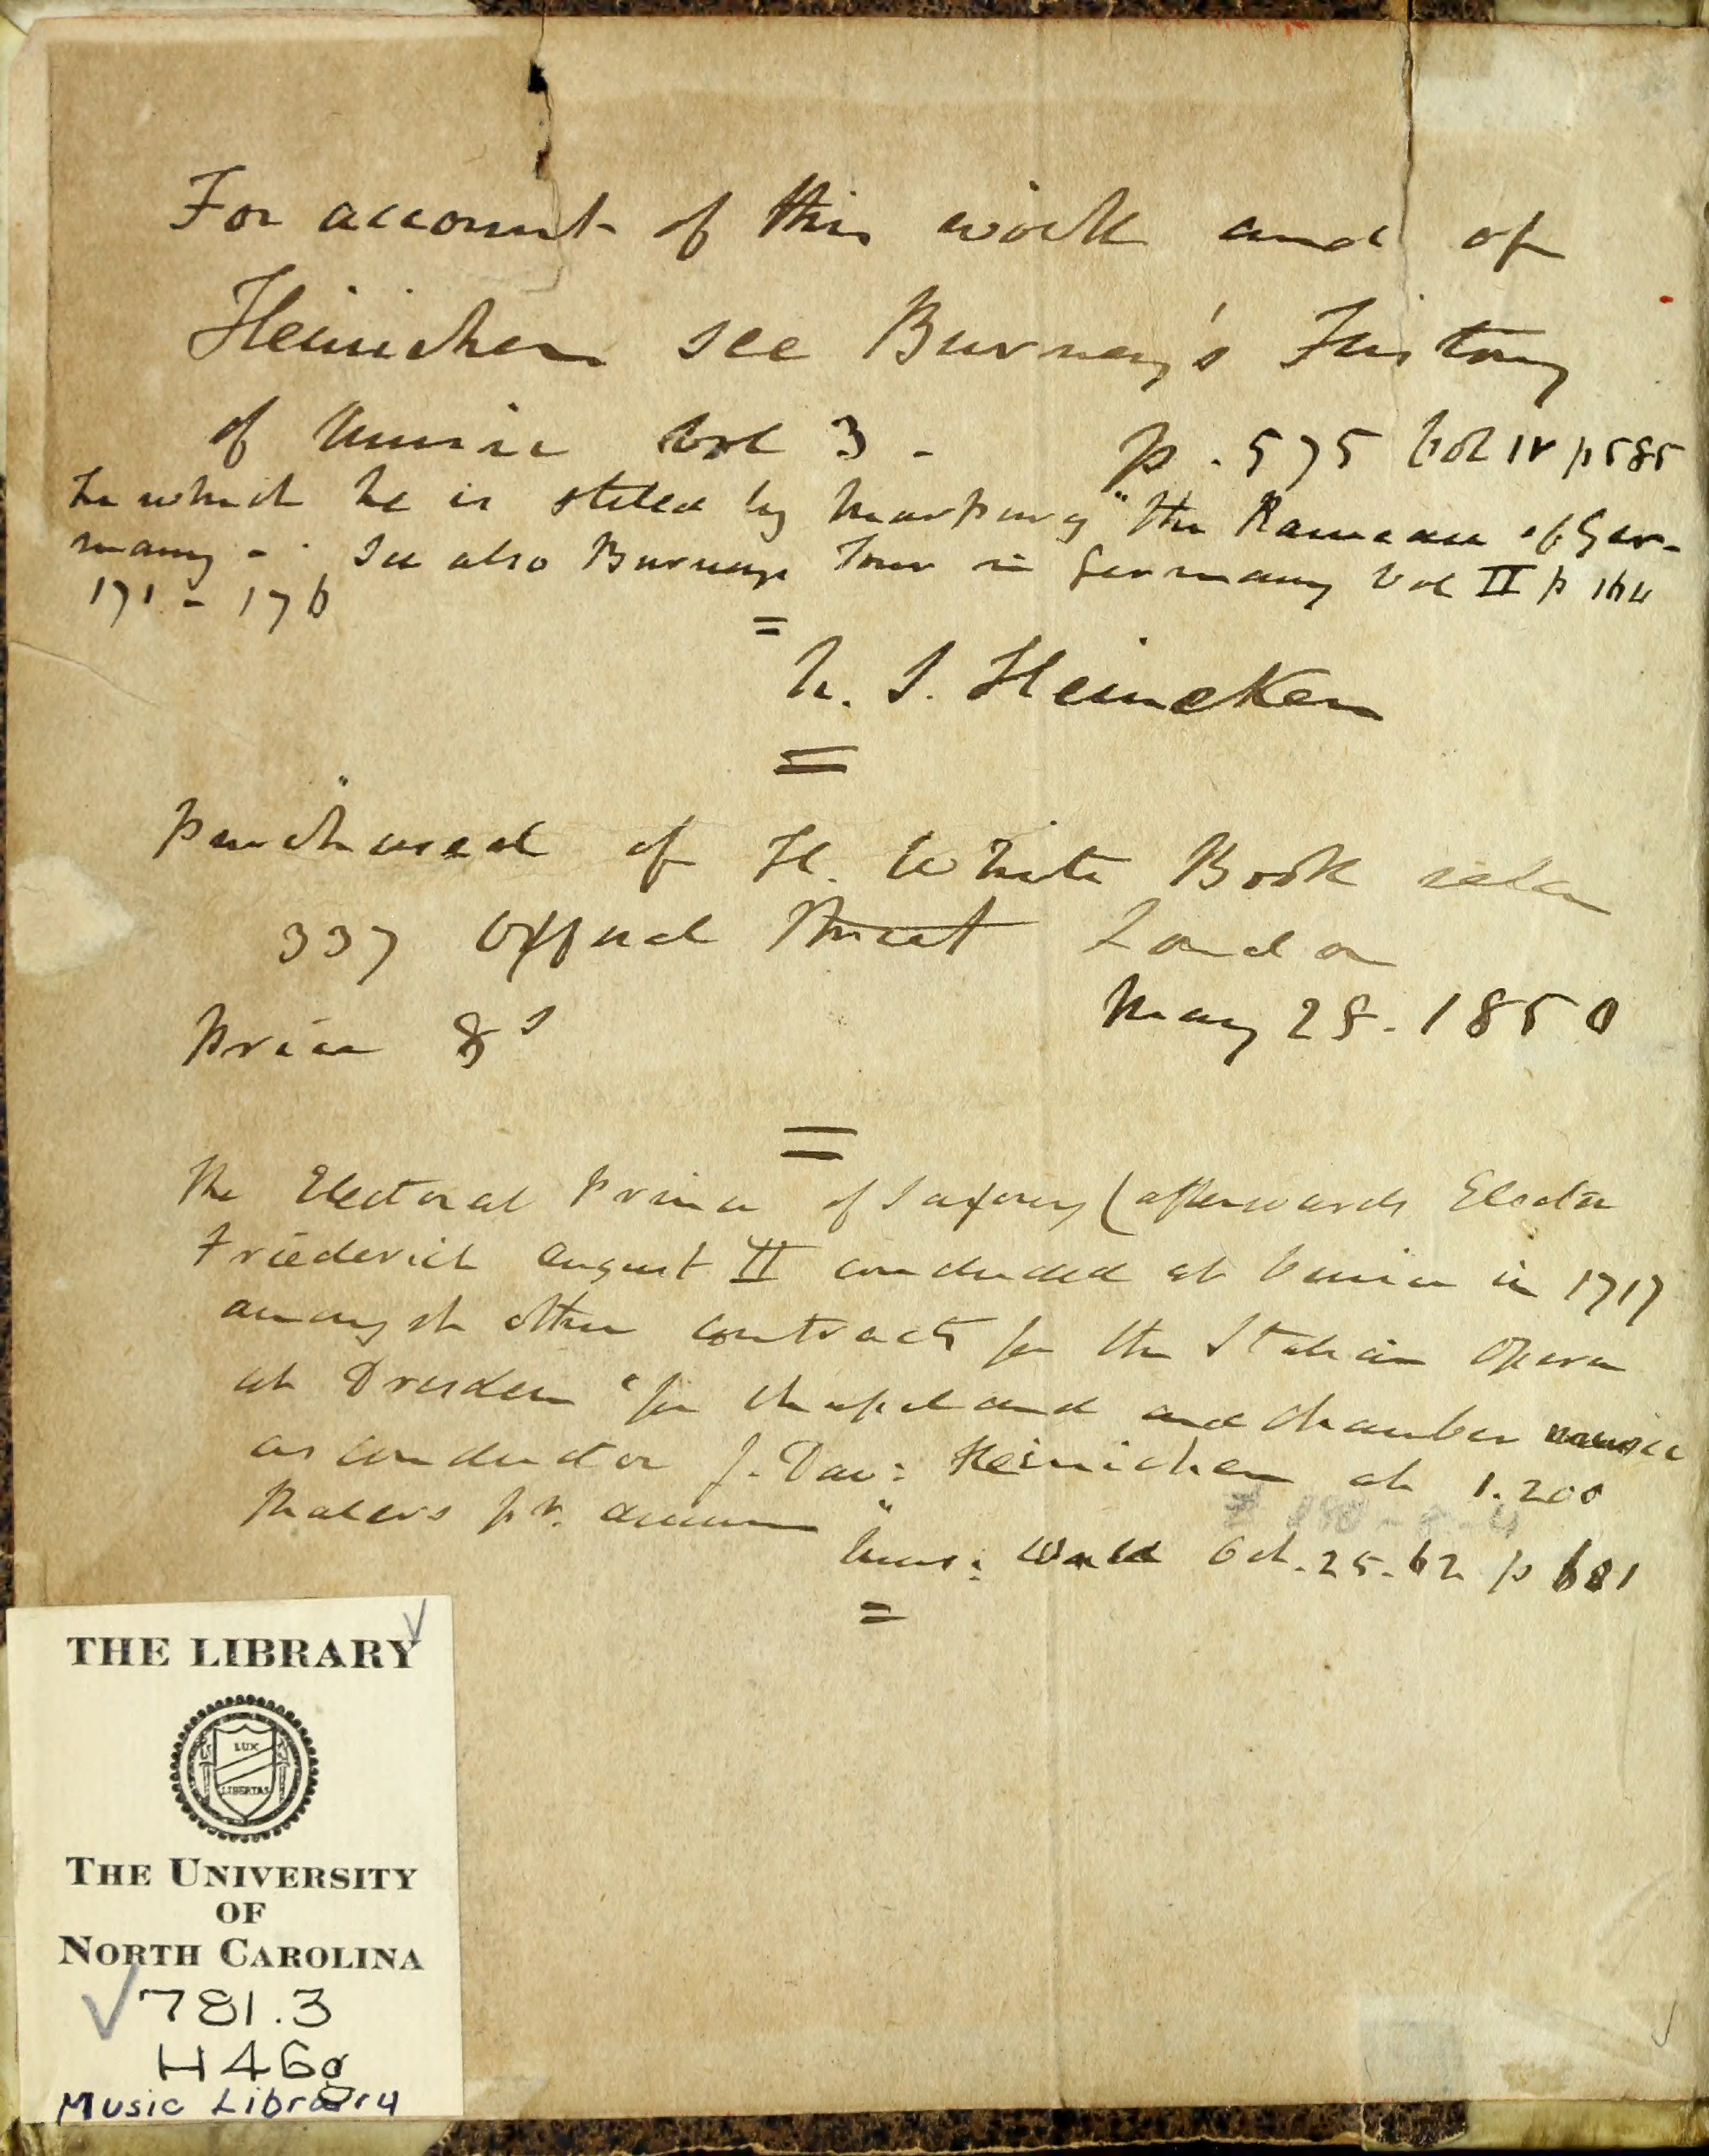 For account of this work and of
Heinichen see Burney's History
of Music Vol 3 - p. 575 Vol IV p 585
In which he is stiled by Marpurg "the Rameau of Ger-
many - See also Burneys Tour in Germany Vol II p 164
171 - 176
=
N. S. Heineken
=
Purchased of H. White Book seller
337 Oxford Street London
May 28. 1850
Price 8s
=
The Electoral Prince of Saxony (afterwards Elector
Friederich August II concluded at Venice in 1717
amongst other contracts for the Italian Opera
at Dresden "for chapel and and chamber music
as conductor J. Dav: Heinichen at 1.200
thalers pr. annum"
Mus: World Oct. 25. 62 p 681
=
THE LIBRARY
LUX
LIBERTAS
THE UNIVERSITY
OF
NORTH CAROLINA
781.3
H46g
Music Library